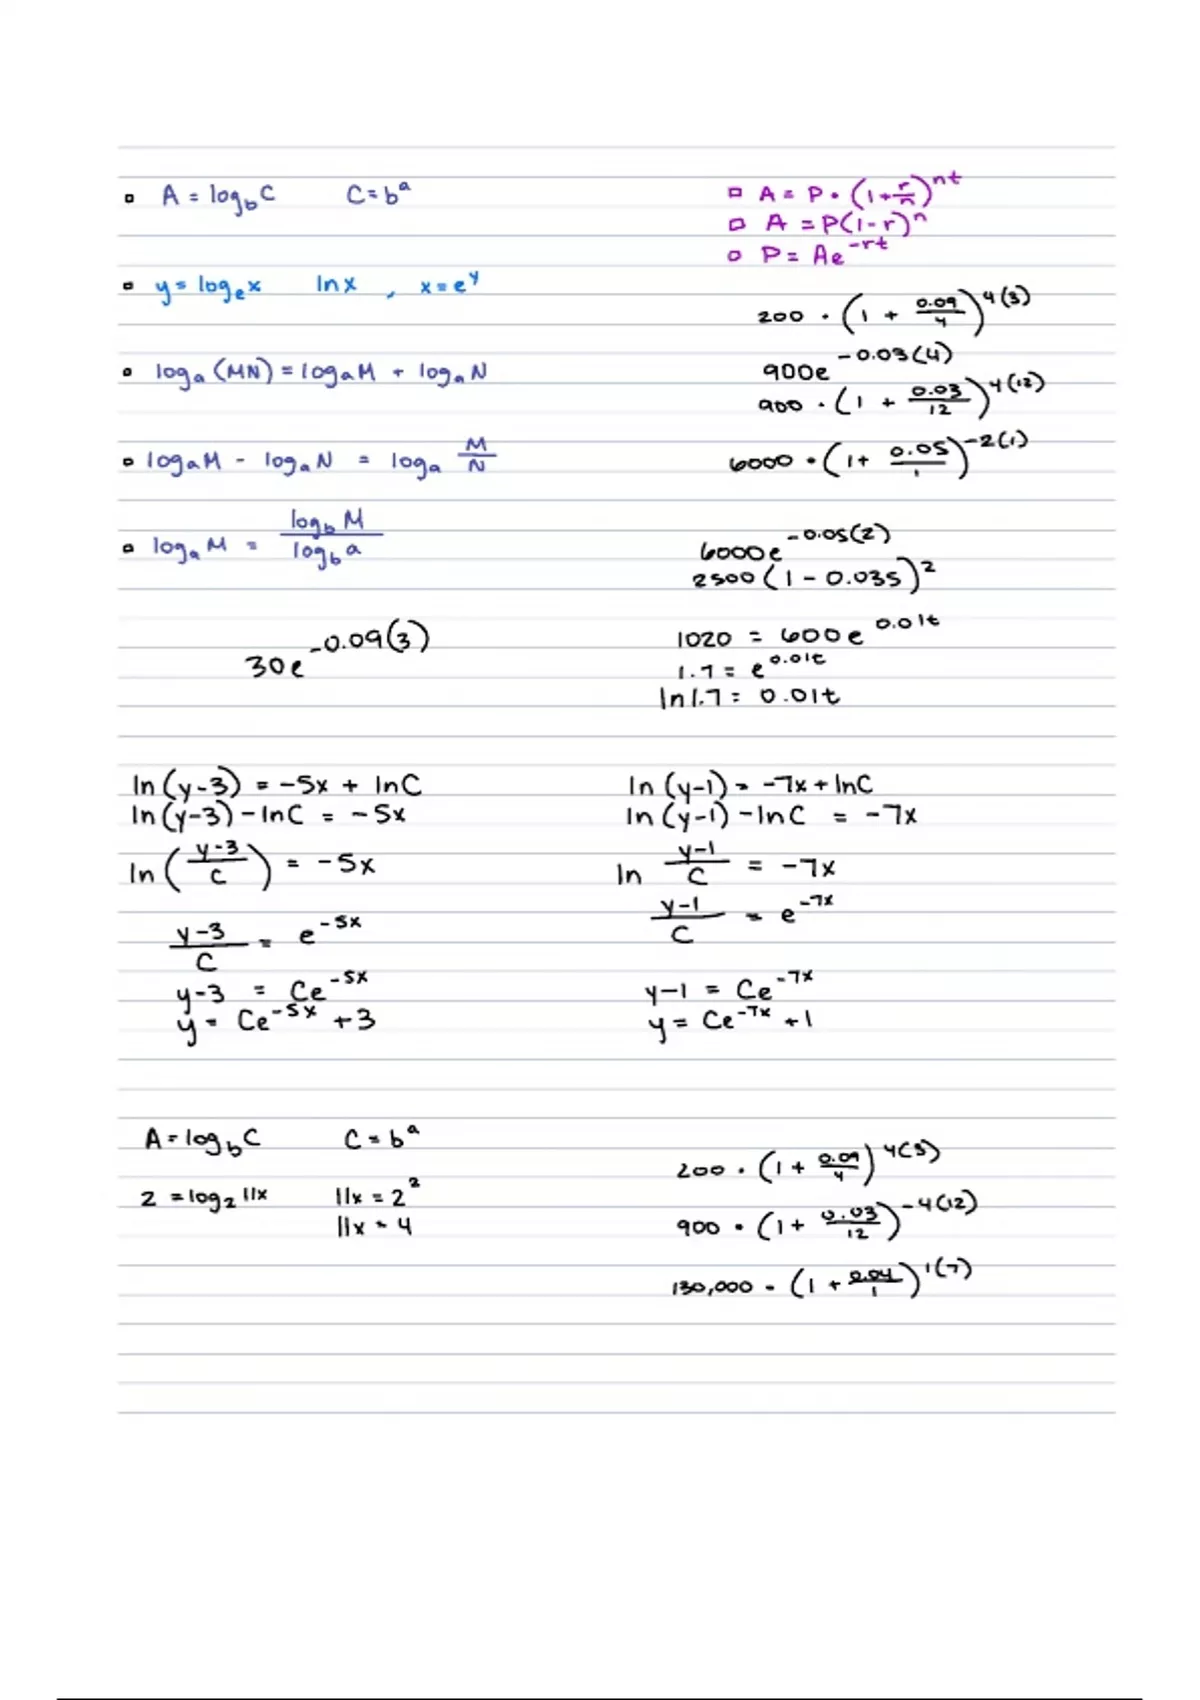 A = log_b C    C = b^a
y = log_e x    ln x , x = e^y
log_a (MN) = log_a M + log_a N
log_a M - log_a N = log_a M/N
log_a M = log_b M / log_b a
30e^-0.09(3)
A = P · (1 + r/n)^nt
A = P(1-r)^n
P = Ae^-rt
200 · (1 + 0.09/4)^4(3)
900e^-0.03(4)
900 · (1 + 0.03/12)^4(12)
6000 · (1 + 0.05/1)^-2(1)
6000e^-0.05(2)
2500 (1 - 0.035)^2
1020 = 600e^0.01t
1.7 = e^0.01t
ln 1.7 = 0.01t
ln (y-3) = -5x + ln C
ln (y-3) - ln C = -5x
ln ( y-3 / C ) = -5x
y-3 / C = e^-5x
y-3 = Ce^-5x
y = Ce^-5x + 3
ln (y-1) = -7x + ln C
ln (y-1) - ln C = -7x
ln y-1 / C = -7x
y-1 / C = e^-7x
y-1 = Ce^-7x
y = Ce^-7x + 1
A = log_b C    C = b^a
2 = log_2 11x    11x = 2^2
11x = 4
200 · (1 + 0.09/4)^4(3)
900 · (1 + 0.03/12)^-4(12)
130,000 · (1 + 0.04/1)^1(7)